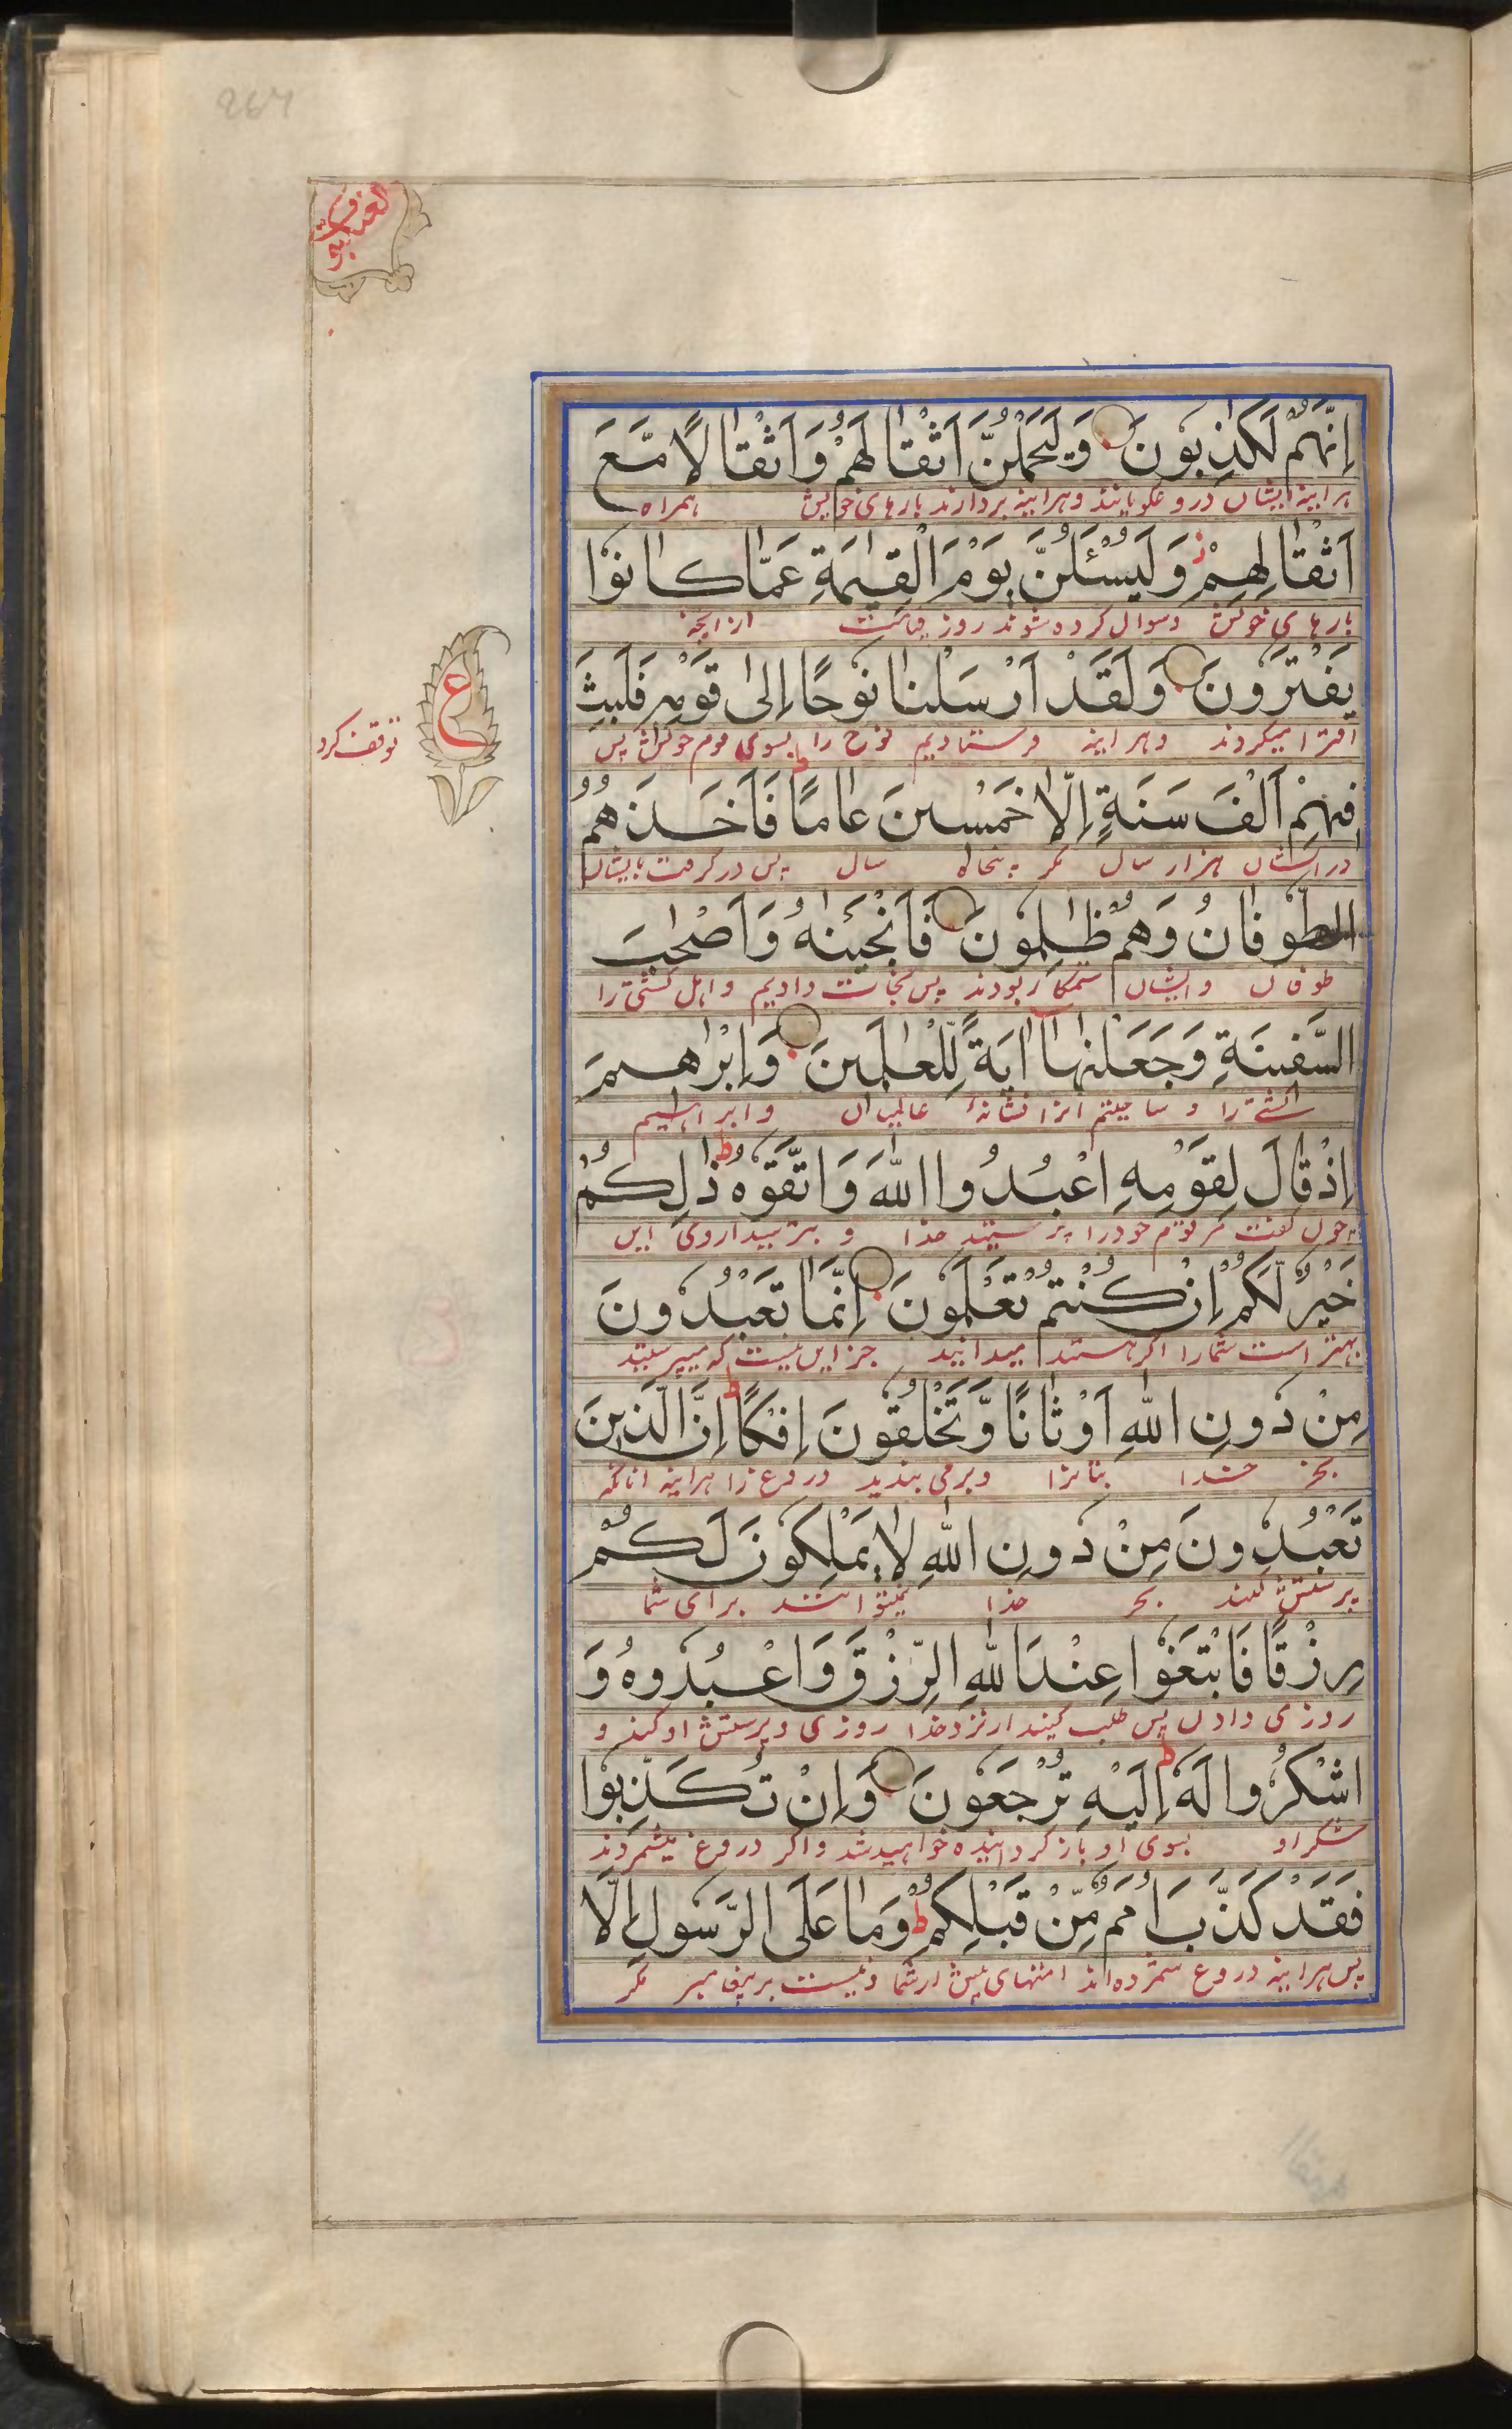 264
العنكبوت
اِنَّهُمْ لَكٰذِبُوْنَ وَلَيَحْمِلُنَّ اَثْقَالَهُمْ وَاَثْقَالًا مَّعَ
هرآینه ایشان دروغگویانند و هرآینه بردارند بارهای خویش همراه
اَثْقَالِهِمْ ز وَلَيُسْـَٔلُنَّ يَوْمَ الْقِيٰمَةِ عَمَّا كَانُوْا
بارهای خویش و سوال کرده شوند روز قیامت از آنچه
يَفْتَرُوْنَ وَلَقَدْ اَرْسَلْنَا نُوْحًا اِلٰى قَوْمِهٖ فَلَبِثَ
افترا میکردند و هرآینه فرستادیم نوح را بسوی قوم خویش پس
ع
توقف کرد
فِيْهِمْ اَلْفَ سَنَةٍ اِلَّا خَمْسِيْنَ عَامًا ط فَاَخَذَهُمُ
در ایشان هزار سال مگر پنجاه سال پس در گرفت ایشان
الطُّوْفَانُ وَهُمْ ظٰلِمُوْنَ فَاَنْجَيْنٰهُ وَاَصْحٰبَ
طوفان و ایشان ستمکار بودند پس نجات دادیم و اهل کشتی را
السَّفِيْنَةِ وَجَعَلْنٰهَآ اٰيَةً لِّلْعٰلَمِيْنَ وَاِبْرٰهِيْمَ
کشتی را و ساختیم آنرا نشانهٔ عالمیان و ابراهیم
اِذْ قَالَ لِقَوْمِهِ اعْبُدُوا اللّٰهَ وَاتَّقُوْهُ ط ذٰلِكُمْ
چون گفت مر قوم خود را پرستید خدا و بترسید از وی این
خَيْرٌ لَّكُمْ اِنْ كُنْتُمْ تَعْلَمُوْنَ اِنَّمَا تَعْبُدُوْنَ
بهتر است شما را اگر هستید میدانید جز این نیست که میپرستید
مِنْ دُوْنِ اللّٰهِ اَوْثَانًا وَّتَخْلُقُوْنَ اِفْكًا ط اِنَّ الَّذِيْنَ
بجز خدا بتانرا و برمی بندید دروغ را هرآینه آنانکه
تَعْبُدُوْنَ مِنْ دُوْنِ اللّٰهِ لَا يَمْلِكُوْنَ لَكُمْ
پرستش کنند بجز خدا نمیتوانند برای شما
رِزْقًا فَابْتَغُوْا عِنْدَ اللّٰهِ الرِّزْقَ وَاعْبُدُوْهُ وَ
روزی دادن پس طلب کنید از نزد خدا روزی و پرستش او کنید و
اشْكُرُوْا لَهٗ ط اِلَيْهِ تُرْجَعُوْنَ وَاِنْ تُكَذِّبُوْا
شکر او بسوی او باز گردانیده خواهید شد و اگر دروغ میشمردند
فَقَدْ كَذَّبَ اُمَمٌ مِّنْ قَبْلِكُمْ ط وَمَا عَلَى الرَّسُوْلِ اِلَّا
پس هرآینه دروغ شمرده اند امتهای پیش از شما و نیست بر پیغامبر مگر